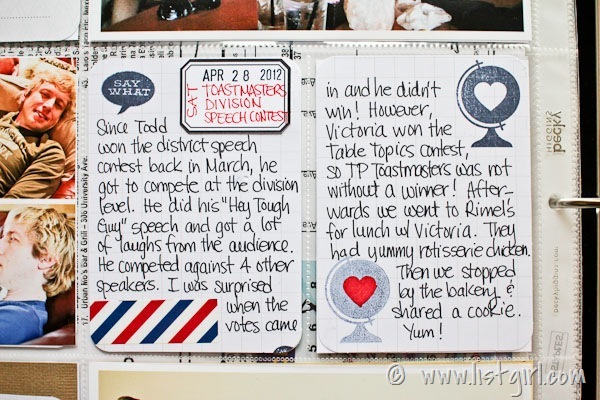 SAY
WHAT
APR 28 2012
SAT
TOASTMASTERS
DIVISION
SPEECH CONTEST
Since Todd
won the district speech
contest back in March, he
got to compete at the division
level. He did his "Hey Tough
Guy" speech and got a lot
of laughs from the audience.
He competed against 4 other
speakers. I was surprised
when the
votes came
in and he didn't
win! However,
Victoria won the
Table Topics contest,
so TP Toastmasters was not
without a winner! After-
wards we went to Rimel's
for lunch w/ Victoria. They
had yummy rotisserie chicken.
Then we stopped
by the bakery &
shared a cookie.
Yum!
17. Urban Mo's Bar & Grill - 308 University Ave.
becky
© www.listgirl.com